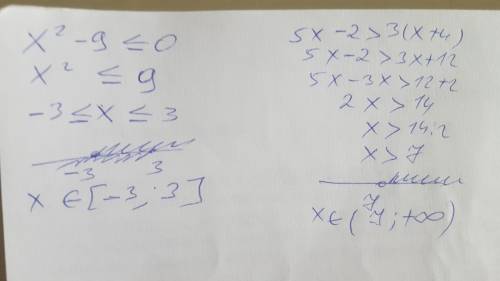 x² - 9 ≤ 0
x² ≤ 9
-3 ≤ x ≤ 3
-3 3
x ∈ [-3; 3]
5x - 2 > 3(x + 4)
5x - 2 > 3x + 12
5x - 3x > 12 + 2
2x > 14
x > 14:2
x > 7
7
x ∈ (7; +∞)